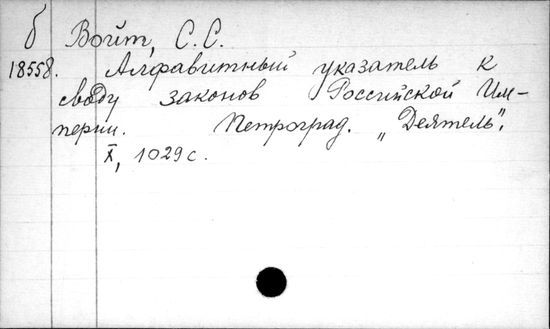 б Войт, С.С.
18558. Алфавитный указатель к
своду законов Российской Им-
перии. Петроград. „Деятель",
X, 1029 с.